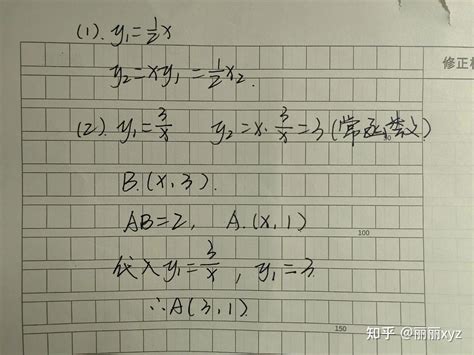 (1). y₁=½x
y₂=xy₁=½x₂.
修正栏
(2). y₁=3/x y₂=x·3/x=3(常函数)
B.(x,3).
AB=2, A.(x,1)
100
代入y₁=3/x, y₁=3
∴A(3,1)
150
知乎 @丽丽xyz